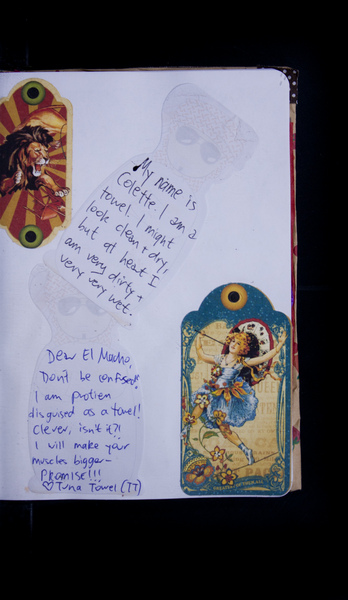 My name is
Colette. I am a
towel. I might
look clean + dry,
but at heart I
am very dirty +
very very wet.
Dear El Macho,
Don't be confused!
I am protien
disguised as a towel!
Clever, isn't it?!
I will make your
muscles bigger-
PROMISE!!!
♡ Tuna Towel (TT)